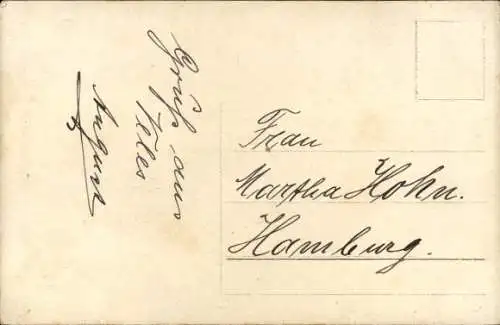 Gruß aus
Veles
August
Frau
Martha Hohn.
Hamburg.